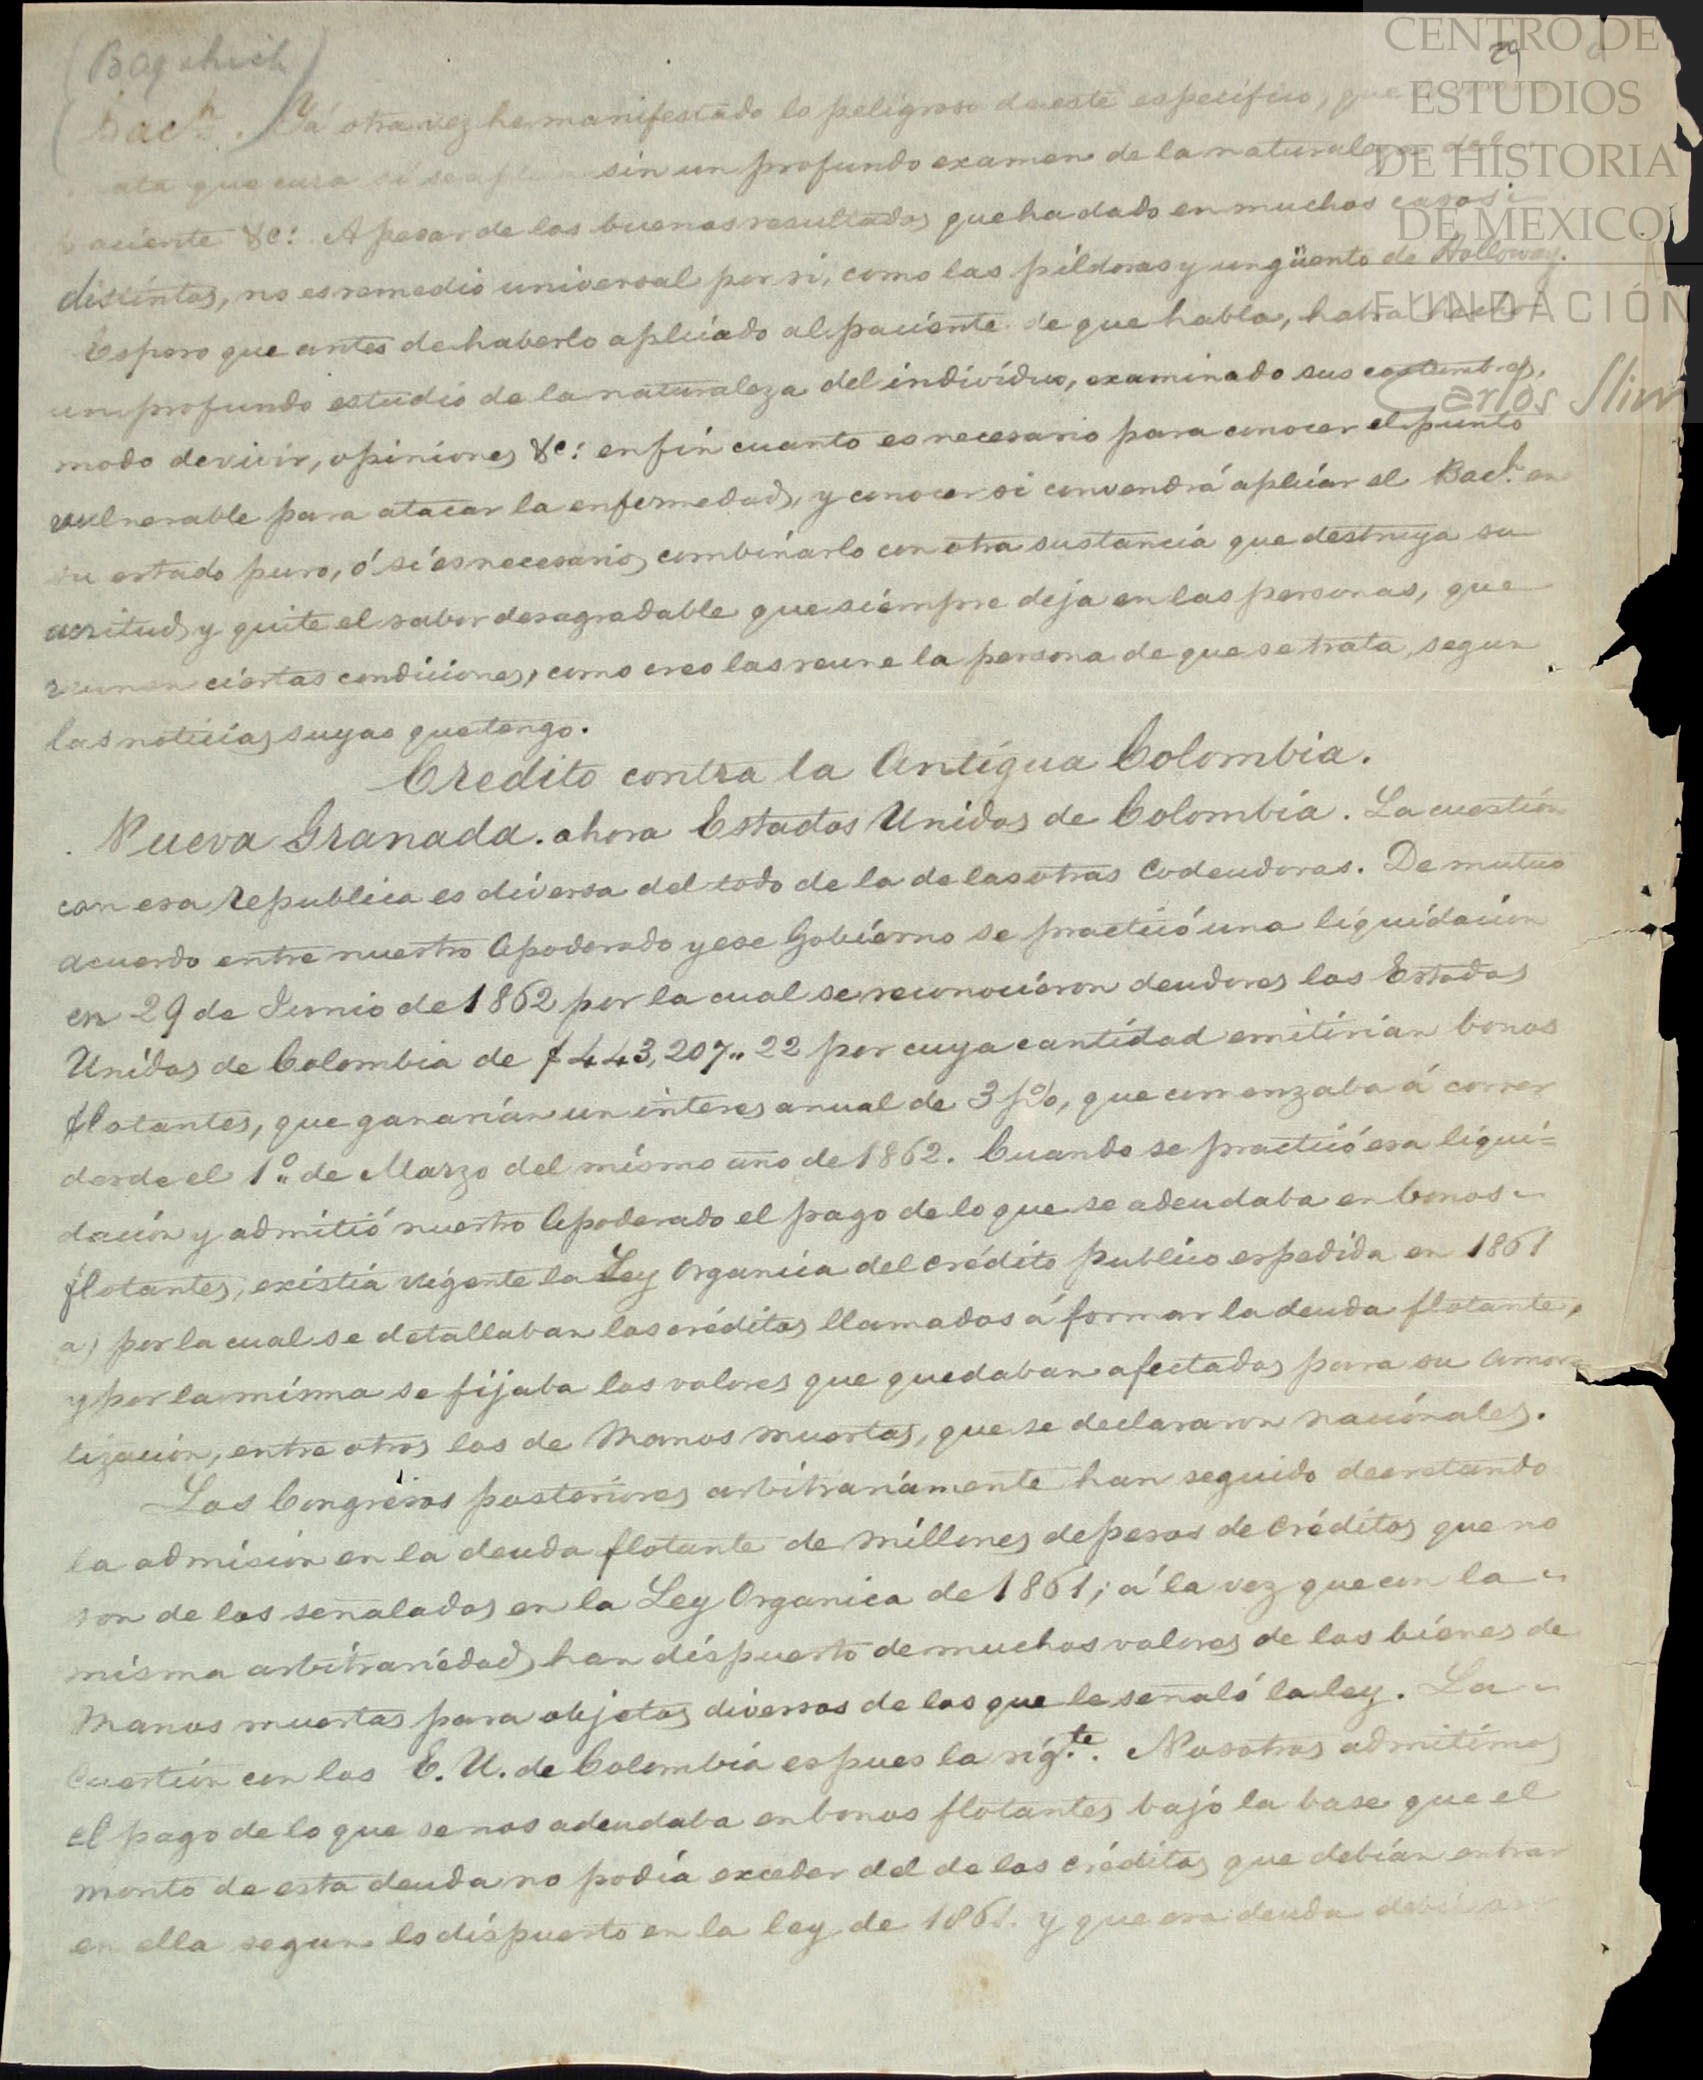 CENTRO DE
ESTUDIOS
DE HISTORIA
DE MEXICO
FUNDACIÓN
Carlos Slim
29
(Bagshich)
(Bach. Yá otra vez he manifestado lo peligroso de este especifico, que
mata que cura si se aplica sin un profundo examen de la naturaleza del
paciente &c: A pesar de los buenos resultados que ha dado en muchos casos
distintos, no es remedio universal por si, como las píldoras y ungüento de Holloway.
Espero que antes de haberlo aplicado al paciente de que habla, habrá hecho
un profundo estudio de la naturaleza del individuo, examinado sus costumbres,
modo de vivir, opiniones &c: en fin cuanto es necesario para conocer el punto
vulnerable para atacar la enfermedad, y conocer si convendrá aplicar el Bach. en
su estado puro, ó si es necesario combinarlo con otra sustancia que destruya su
acritud y quite el sabor desagradable que siempre deja en las personas, que
reunen ciertas condiciones, como creo las reune la persona de que se trata, segun
las noticias suyas que tengo.
Credito contra la Antigua Colombia.
Nueva Granada. ahora Estados Unidos de Colombia. La cuestión
con esa republica es diversa del todo de la de las otras Codeudoras. De mutuo
acuerdo entre nuestro Apoderado y ese Gobierno se practicó una liquidacion
en 29 de Junio de 1862 por la cual se reconocieron deudores los Estados
Unidos de Colombia de $443,207.,22 por cuya cantidad emitirian bonos
flotantes, que ganarian un interes anual de 3 p%, que comenzaba á correr
desde el 1º de Marzo del mismo año de 1862. Cuando se practicó esa liqui=
dación y admitió nuestro Apoderado el pago de lo que se adeudaba en bonos
flotantes, existia vigente la Ley Organica del crédito publico espedida en 1861
a) por la cual se detallaban los créditos llamados á formar la deuda flotante,
y por la misma se fijaba los valores que quedaban afectados para su amor=
tización, entre otros los de Manos muertas, que se declararon nacionales.
Los Congresos posteriores arbitrariamente han seguido decretando
la admision en la deuda flotante de millones de pesos de créditos que no
son de los señalados en la Ley Organica de 1861; á la vez que con la
misma arbitrariedad han dispuesto de muchos valores de los bienes de
Manos muertas para objetos diversos de los que le señaló la ley. La
Cuestion con los E. U. de Colombia es pues la sigte. Nosotros admitimos
el pago de lo que se nos adeudaba en bonos flotantes bajo la base que el
monto de esta deuda no podía exceder del de los créditos que debian entrar
en ella segun lo dispuesto en la ley de 1861. y que esa deuda